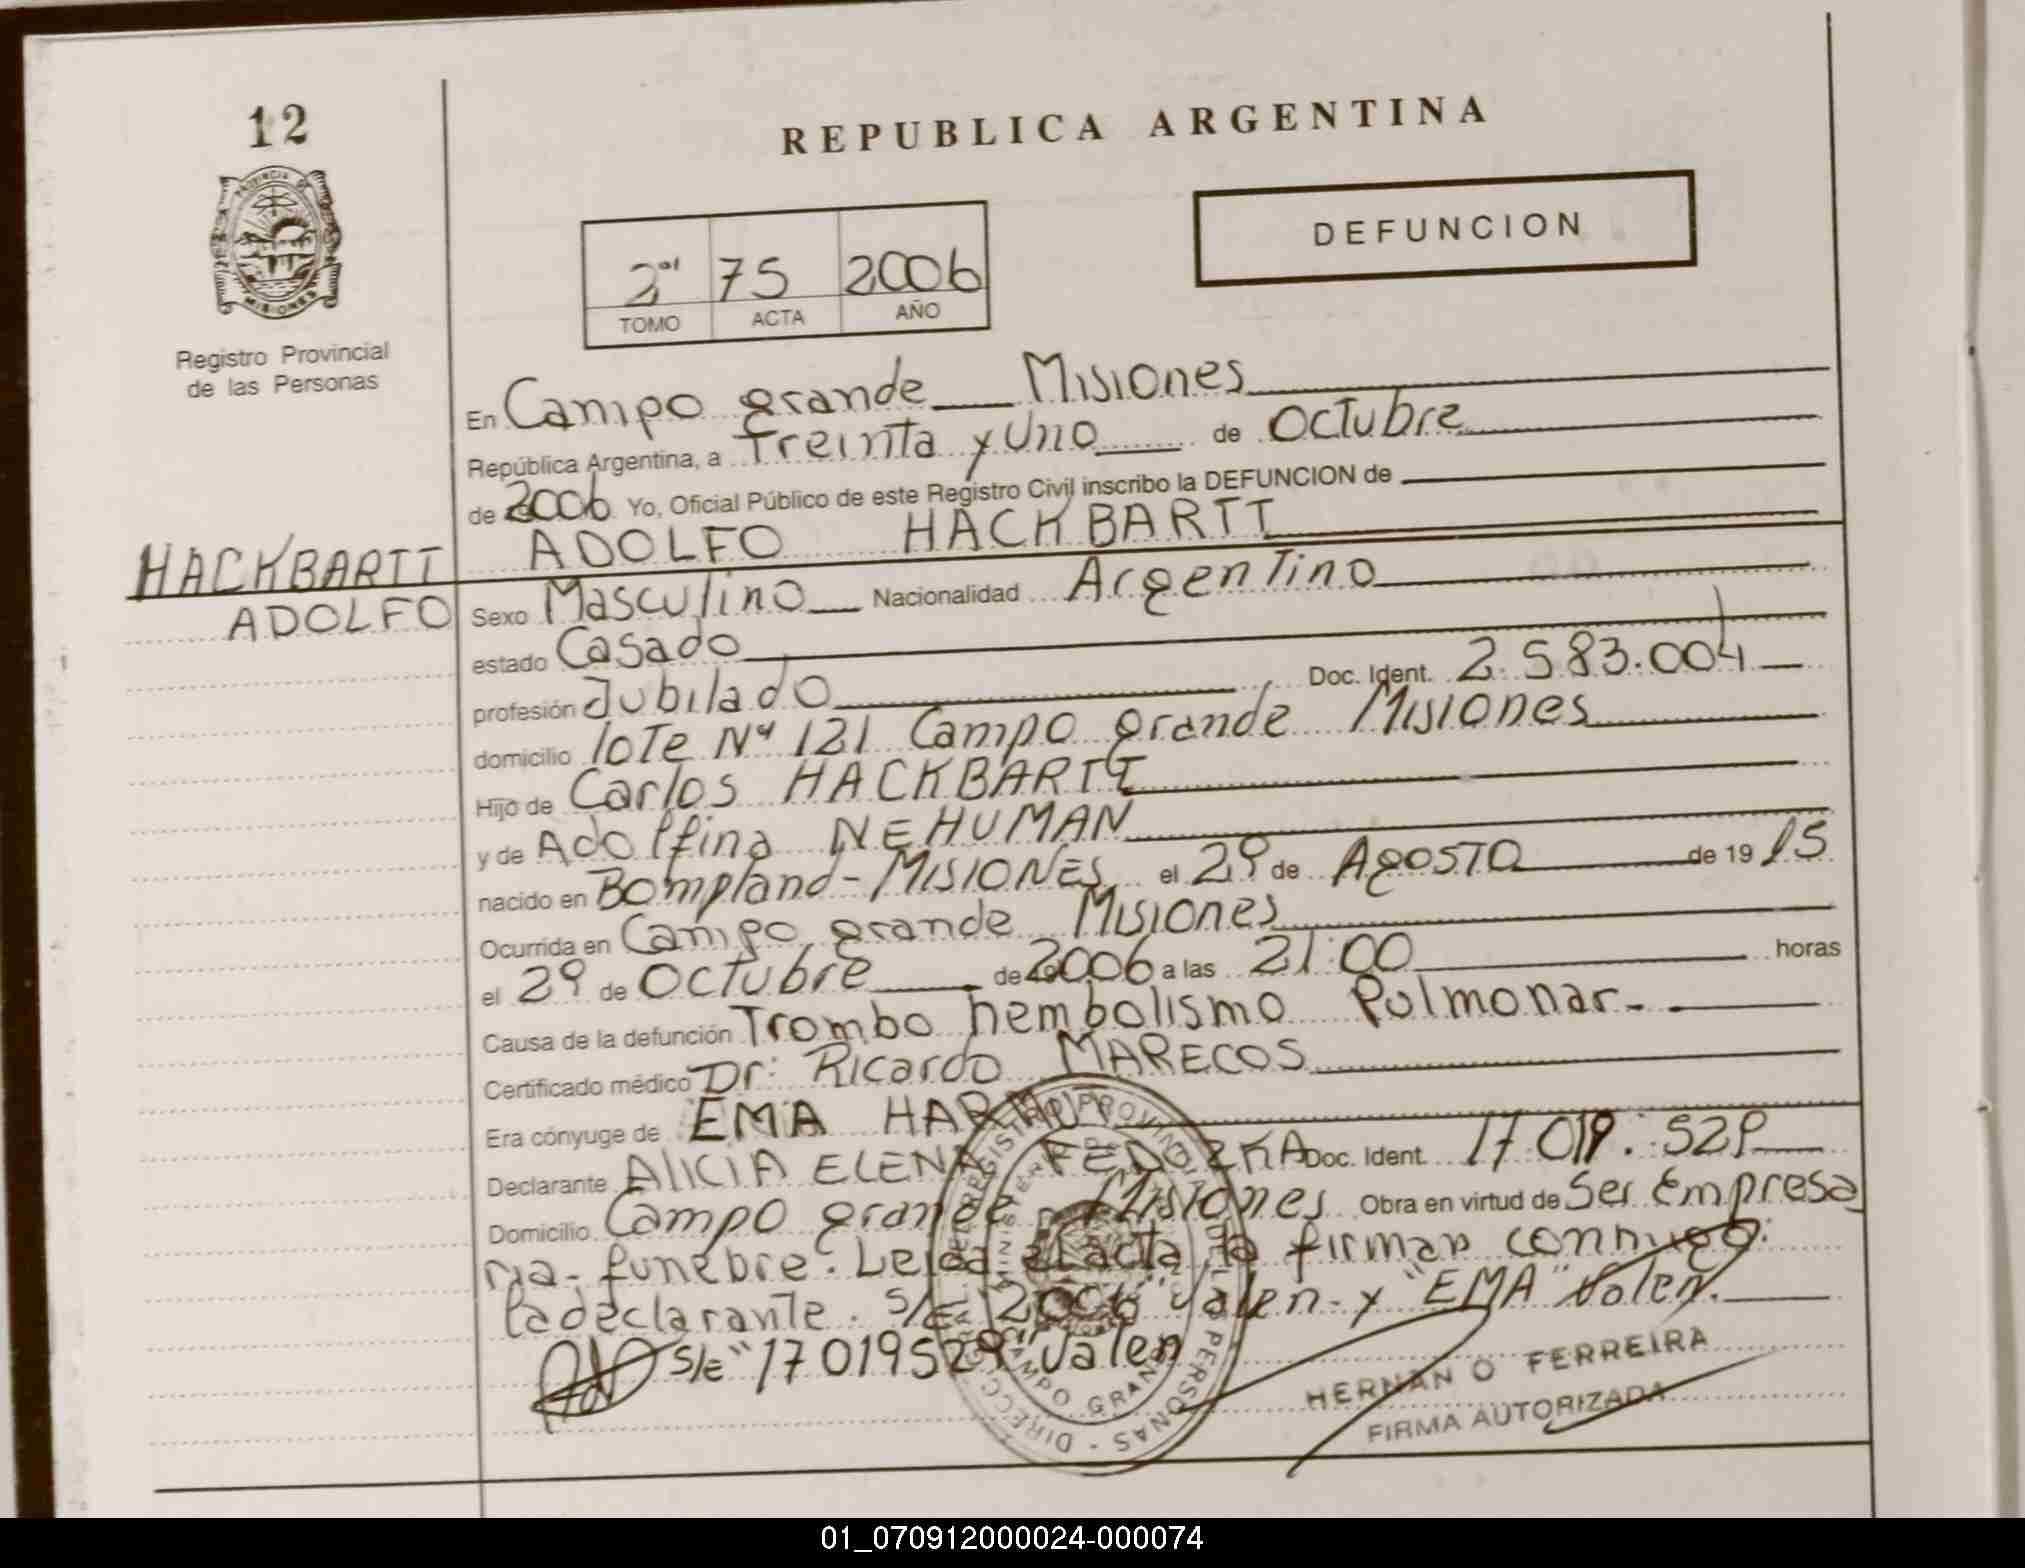 12
PROVINCIA DE
MISIONES
Registro Provincial
de las Personas
REPUBLICA ARGENTINA
DEFUNCION
2º 75 2006
TOMO ACTA AÑO
En Campo grande Misiones
República Argentina, a Treinta y Uno de Octubre
de 2006 Yo, Oficial Público de este Registro Civil inscribo la DEFUNCION de
HACKBARTT ADOLFO HACKBARTT
ADOLFO Sexo Masculino Nacionalidad Argentino
estado Casado
profesión Jubilado Doc. Ident. 2.583.004
domicilio lote Nº 121 Campo grande Misiones
Hijo de Carlos HACKBARTT
y de Adolfina NEHUMAN
nacido en Bompland - MISIONES el 29 de Agosto de 1915
Ocurrida en Campo grande Misiones
el 29 de Octubre de 2006 a las 21:00 horas
Causa de la defunción Trombo hembolismo Pulmonar.-
Certificado médico Dr: Ricardo MARECOS
Era cónyuge de EMA
Declarante ALICIA ELENA Doc. Ident. 17.019.529
Domicilio Campo grande - Misiones Obra en virtud de Ser Empresa
ria - funebre. Leida el acta la firman conmigo
la declarante. S/E "2006" Valen - y "EMA" Valen.
S/E "17019529" Valen
HERNAN O FERREIRA
FIRMA AUTORIZADA
DIRECCION GENERAL DEL REGISTRO PROVINCIAL DE LAS PERSONAS
CAMPO GRANDE
01_070912000024-000074